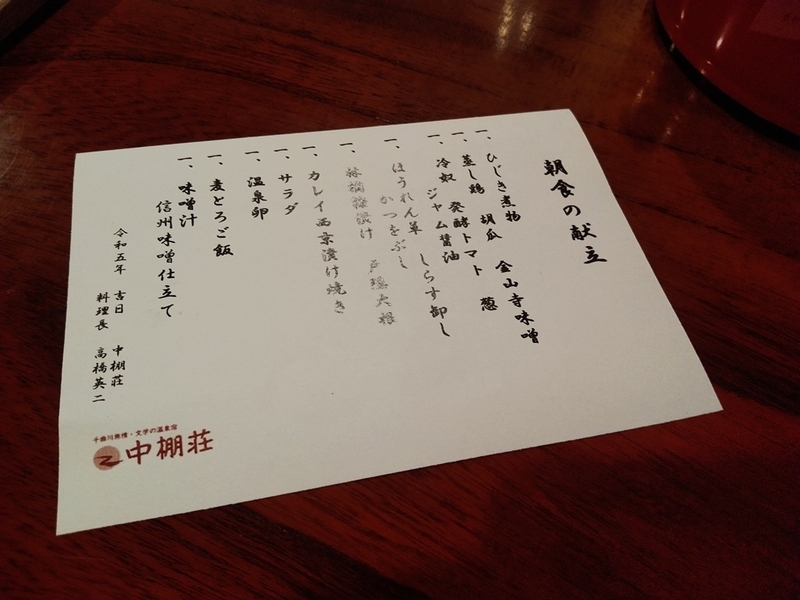 朝食の献立
一、ひじき煮物　金山寺味噌
一、蒸し鶏　胡瓜　葱
発酵トマト
一、冷奴　ジャム醤油
一、ほうれん草　しらす卸し
かつをぶし
一、林檎麹漬け　戸隠大根
一、カレイ西京漬け焼き
一、サラダ
一、温泉卵
一、麦とろご飯
一、味噌汁
信州味噌仕立て
令和五年　吉日　中棚荘
料理長　高橋英二
千曲川旅情・文学の温泉宿
中棚荘